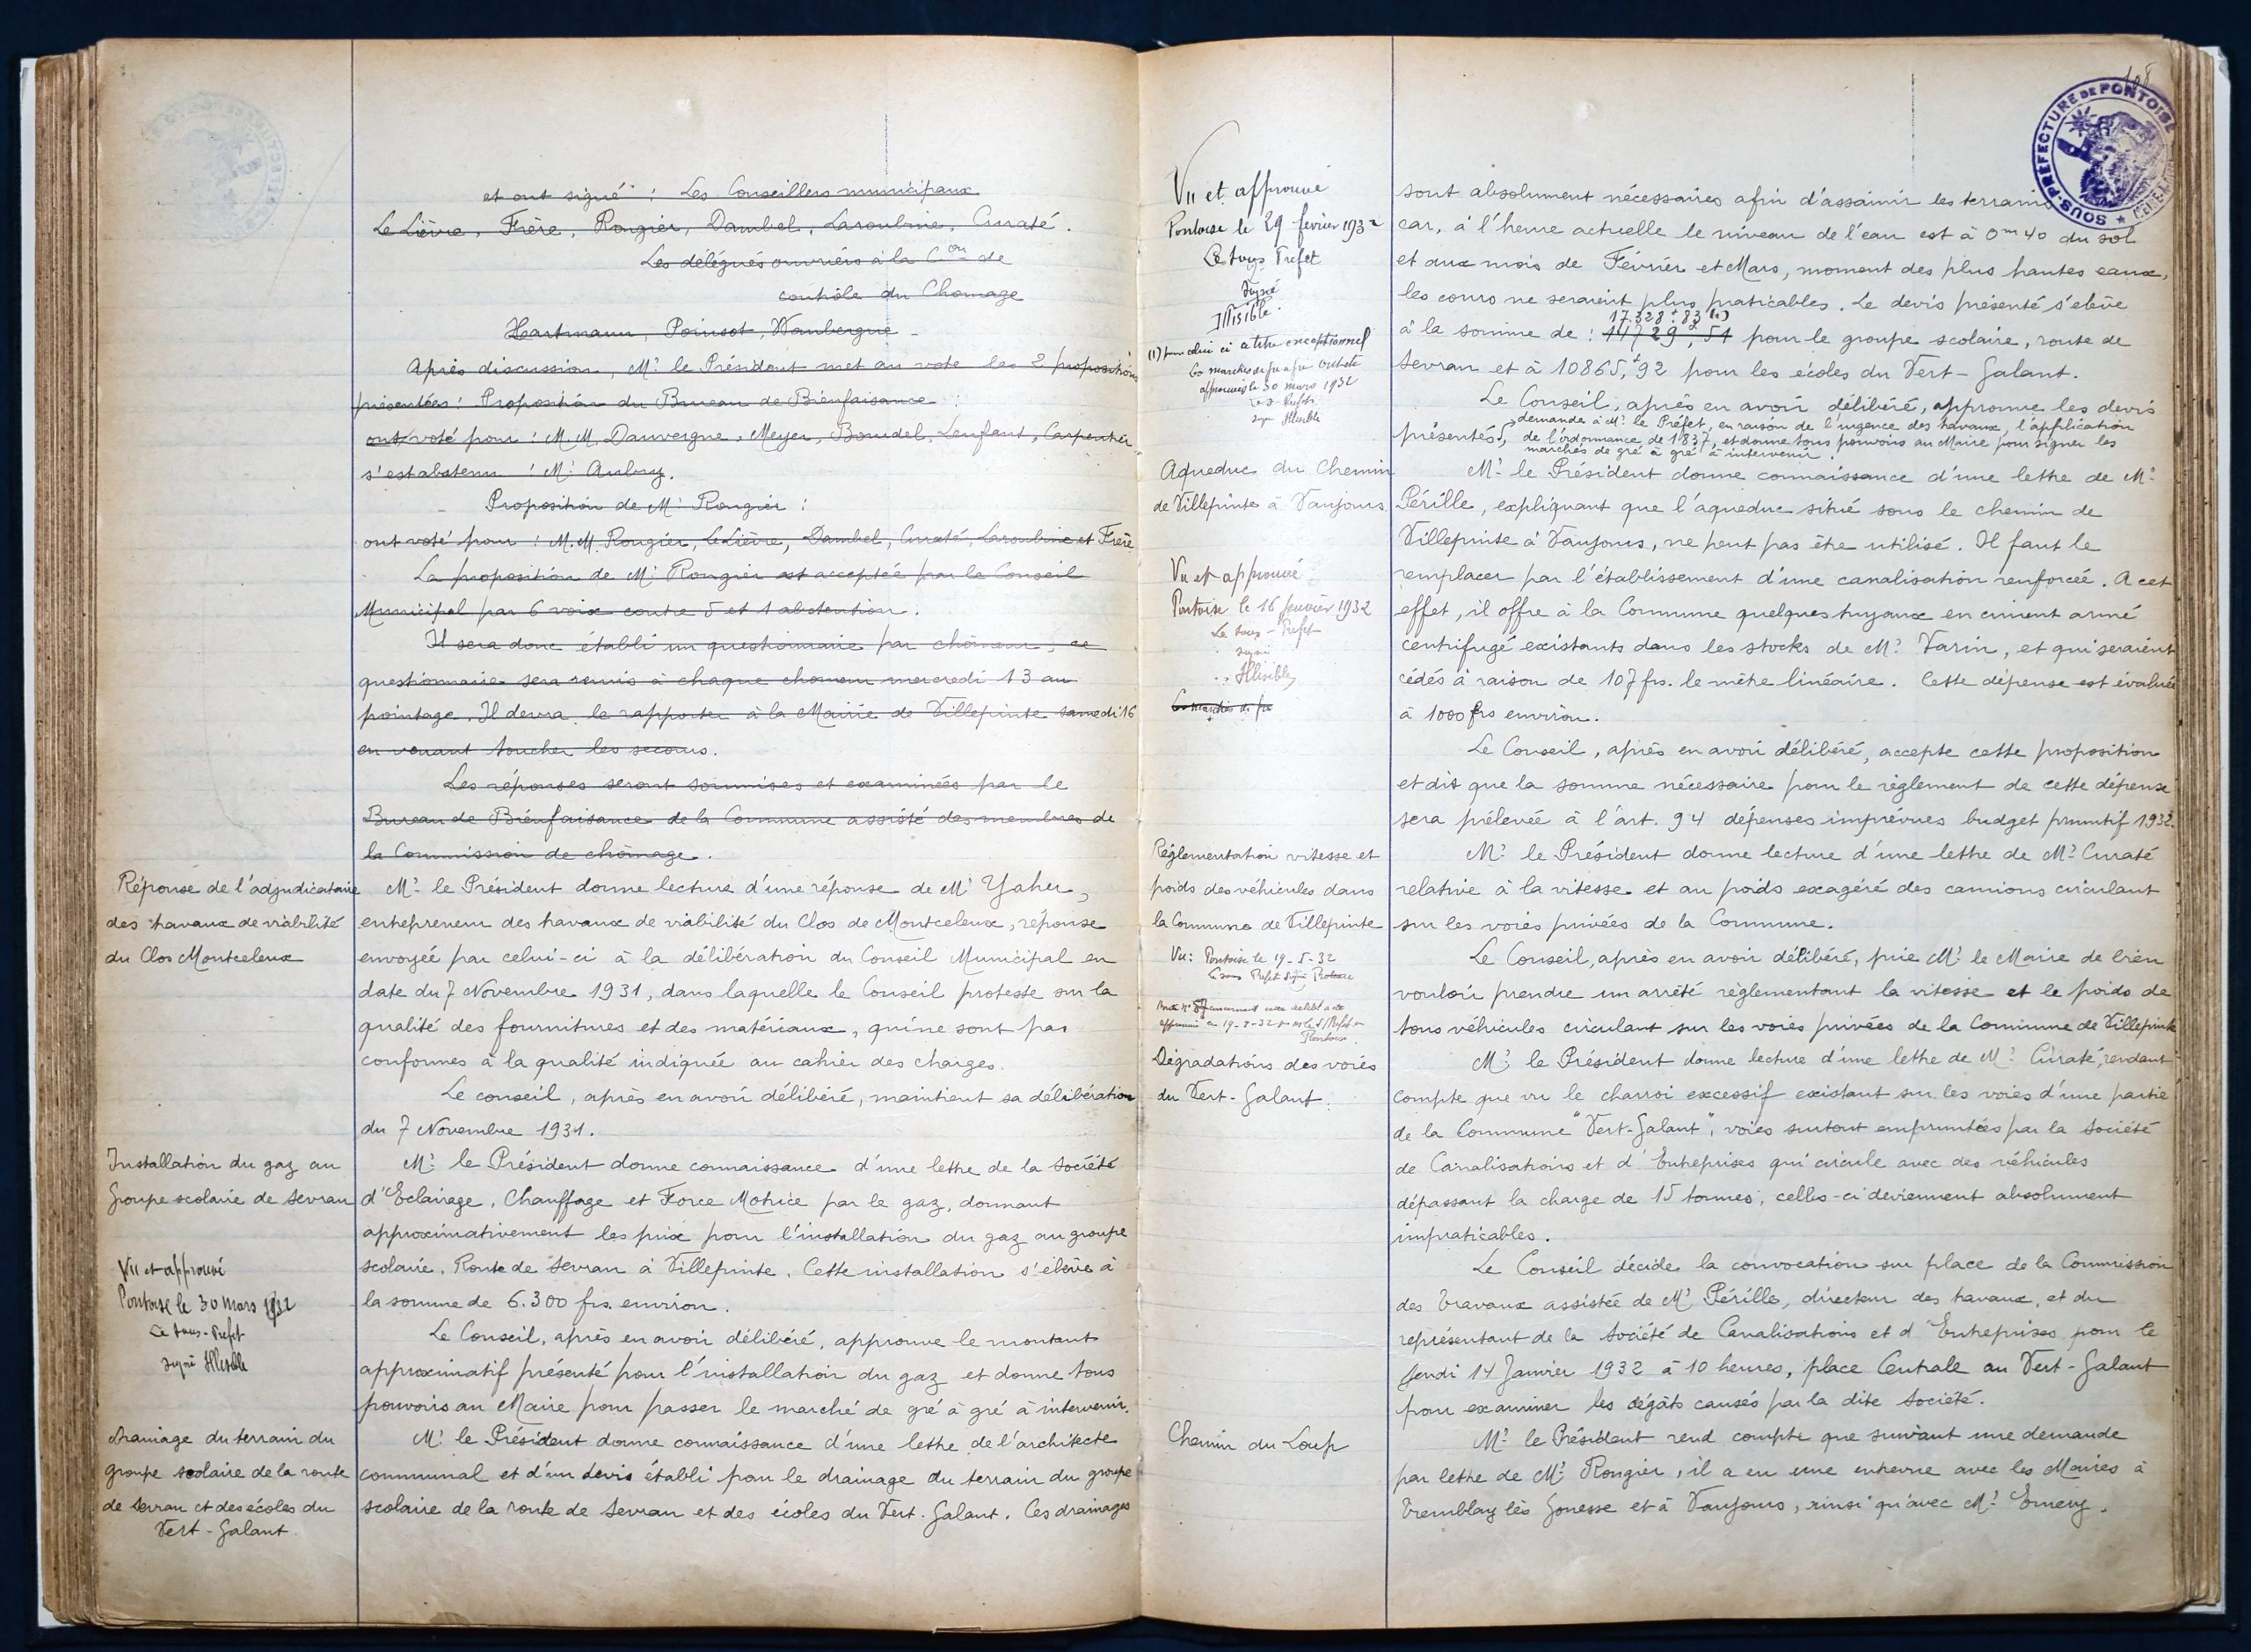 et ont signé : Les Conseillers municipaux
Le Lièvre, Frère, Rougier, Dambel, Laroubine, Curaté.
Les délégués ouvriers à la Con de
contrôle du Chomage
Hartmann, Poinsot, Wanbergue
Après discussion, Mr le Président met au vote les 2 propositions
présentées : Proposition du Bureau de Bienfaisance :
ont voté pour : M.M. Dauvergne, Meyer, Boudel, Lenfant, Carpentier
s'est abstenu : Mr Aubry.
Proposition de Mr Rougier :
ont voté pour : M.M. Rougier, Le Lièvre, Dambel, Curaté, Laroubine et Frère
La proposition de Mr Rougier est acceptée par le Conseil
Municipal par 6 voix contre 5 et 1 abstention.
Il sera donc établi un questionnaire par chômeur, ce
questionnaire sera remis à chaque chomeur mercredi 13 au
pointage. Il devra le rapporter à la Mairie de Villepinte samedi 16
en venant toucher les secours.
Les réponses seront soumises et examinées par le
Bureau de Bienfaisance de la Commune assisté des membres de
la Commission de chômage.
Réponse de l'adjudicataire
des travaux de viabilité
du Clos Montceleux
Mr le Président donne lecture d'une réponse de Mr Yaher,
entrepreneur des travaux de viabilité du Clos de Montceleux, réponse
envoyée par celui-ci à la délibération du Conseil Municipal en
date du 7 Novembre 1931, dans laquelle le Conseil proteste sur la
qualité des fournitures et des matériaux, qui ne sont pas
conformes à la qualité indiquée au cahier des charges.
Le conseil, après en avoir délibéré, maintient sa délibération
du 7 Novembre 1931.
Installation du gaz au
Groupe scolaire de Sevran
Mr le Président donne connaissance d'une lettre de la Société
d'Eclairage, Chauffage et Force Motrice par le gaz, donnant
approximativement les prix pour l'installation du gaz au groupe
scolaire, Route de Sevran à Villepinte. Cette installation s'élève à
la somme de 6.300 frs. environ.
Vu et approuvé
Pontoise le 30 Mars 1932
Le Sous-Préfet
signé Illisible
Le Conseil, après en avoir délibéré, approuve le montant
approximatif présenté pour l'installation du gaz et donne tous
pouvoirs au Maire pour passer le marché de gré à gré à intervenir.
Drainage du terrain du
groupe scolaire de la route
de Sevran et des écoles du
Vert-Galant.
Mr le Président donne connaissance d'une lettre de l'architecte
communal et d'un devis établi pour le drainage du terrain du groupe
scolaire de la route de Sevran et des écoles du Vert-Galant. Ces drainages
108
SOUS-PREFECTURE DE PONTOISE
Vu et approuvé
Pontoise le 29 février 1932
Le Sous Préfet
Signé
Illisible.
(1) pour celui ci à titre exceptionnel
approuvés le 30 mars 1932
signé Illisible
sont absolument nécessaires afin d'assainir les terrains
car, à l'heure actuelle le niveau de l'eau est à 0m40 du sol
et aux mois de Février et Mars, moment des plus hautes eaux,
les cours ne seraient plus praticables. Le devis présenté s'elève
17.328f83 (1)
à la somme de : 14729,51 pour le groupe scolaire, route de
Sevran et à 10865,f92 pour les écoles du Vert-Galant.
Le Conseil, après en avoir délibéré, approuve les devis
présentés, demande à Mr le Préfet, en raison de l'urgence des travaux, l'application
de l'ordonnance de 1837, et donne tous pouvoirs au Maire pour signer les
marchés de gré à gré à intervenir.
Aqueduc du Chemin
de Villepinte à Vaujours
Mr le Président donne connaissance d'une lettre de Mr
Pérille, expliquant que l'aqueduc situé sous le chemin de
Villepinte à Vaujours, ne peut pas être utilisé. Il faut le
remplacer par l'établissement d'une canalisation renforcée. A cet
effet, il offre à la Commune quelques tuyaux en ciment armé
centrifugé existants dans les stocks de Mr Varin, et qui seraient
cédés à raison de 107 frs. le mètre linéaire. Cette dépense est évaluée
à 1000 frs environ.
Vu et approuvé
Pontoise le 16 février 1932
Le Sous-Préfet
signé
Illisible
Le Conseil, après en avoir délibéré, accepte cette proposition
et dit que la somme nécessaire pour le règlement de cette dépense
sera prélevée à l'art. 94 dépenses imprévues budget primitif 1932.
Réglementation vitesse et
poids des véhicules dans
la Commune de Villepinte
Vu : Pontoise le 19-5-32
Mr le Président donne lecture d'une lettre de Mr Curaté
relative à la vitesse et au poids exagéré des camions circulant
sur les voies privées de la Commune.
Le Conseil, après en avoir délibéré, prie Mr le Maire de bien
vouloir prendre un arrêté règlementant la vitesse et le poids de
tous véhicules circulant sur les voies privées de la Commune de Villepinte
Dégradations des voies
du Vert-Galant.
Mr le Président donne lecture d'une lettre de Mr Curaté, rendant
compte que vu le charroi excessif existant sur les voies d'une partie
de la Commune "Vert-Galant", voies surtout empruntées par la Société
de Canalisations et d'Entreprises qui circule avec des véhicules
dépassant la charge de 15 tonnes, celles-ci deviennent absolument
impraticables.
Le Conseil décide la convocation sur place de la Commission
des Travaux assistée de Mr Pérille, directeur des travaux, et du
représentant de la Société de Canalisations et d'Entreprises pour le
Jeudi 14 Janvier 1932 à 10 heures, place Centrale au Vert-Galant
pour examiner les dégâts causés par la dite Société.
Chemin du Loup
Mr le Président rend compte que suivant une demande
par lettre de Mr Rougier, il a eu une entrevue avec les Maires à
Tremblay lès Gonesse et à Vaujours, ainsi qu'avec Mr Emery.